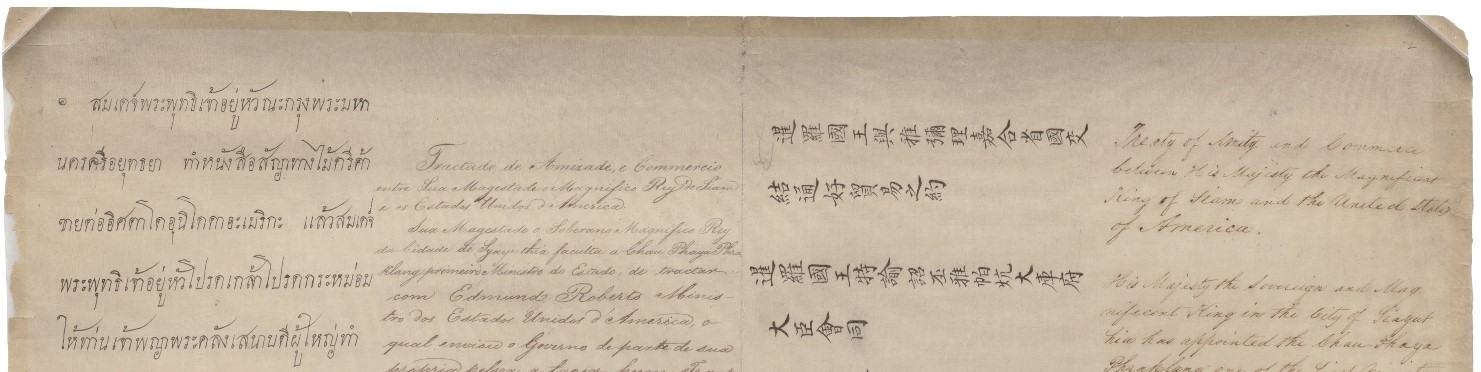 ๏ สมเดจ์พระพุทธิเจ้าอยู่หัวณะกรุงพระมหา
นครศรีอยุทธยา ทำหนังสือสัญาทางไม้ตรีค้า
ขายต่ออิศตาโดอุนิโดดาอะเมริกะ แล้วสมเดจ์
พระพุทธิเจ้าอยู่หัวโปรดเกล้าโปรดกระหม่อม
ให้ท่านเจ้าพญาพระคลังเสนาบดีผู้ใหญ่ทำ
Tractado de Amizade, e Commercio
entre Sua Magestade o Magnifico Rey de Siam
e os Estados Unidos d'America
Sua Magestade o Soberano Magnifico Rey
da Cidade de Syayuthia faculta a Chau Phaya Phra
klang primeiro Ministro do Estado, de tractar
com Edmund Roberts Minis-
tro dos Estados Unidos d'America, o
qual enviou o Governo de parte de sua
暹羅國王與雅彌理嘉合省國交
結通好貿易之約
暹羅國王特諭詔丕雅帕炕大庫府
大臣會同
Treaty of Amity and Commerce
between His Majesty the Magnificent
King of Siam and the United States
of America.
His Majesty the Sovereign and Mag
nificent King in the City of Siayut
hia has appointed the Chau Phaya
Phraklang one of the First